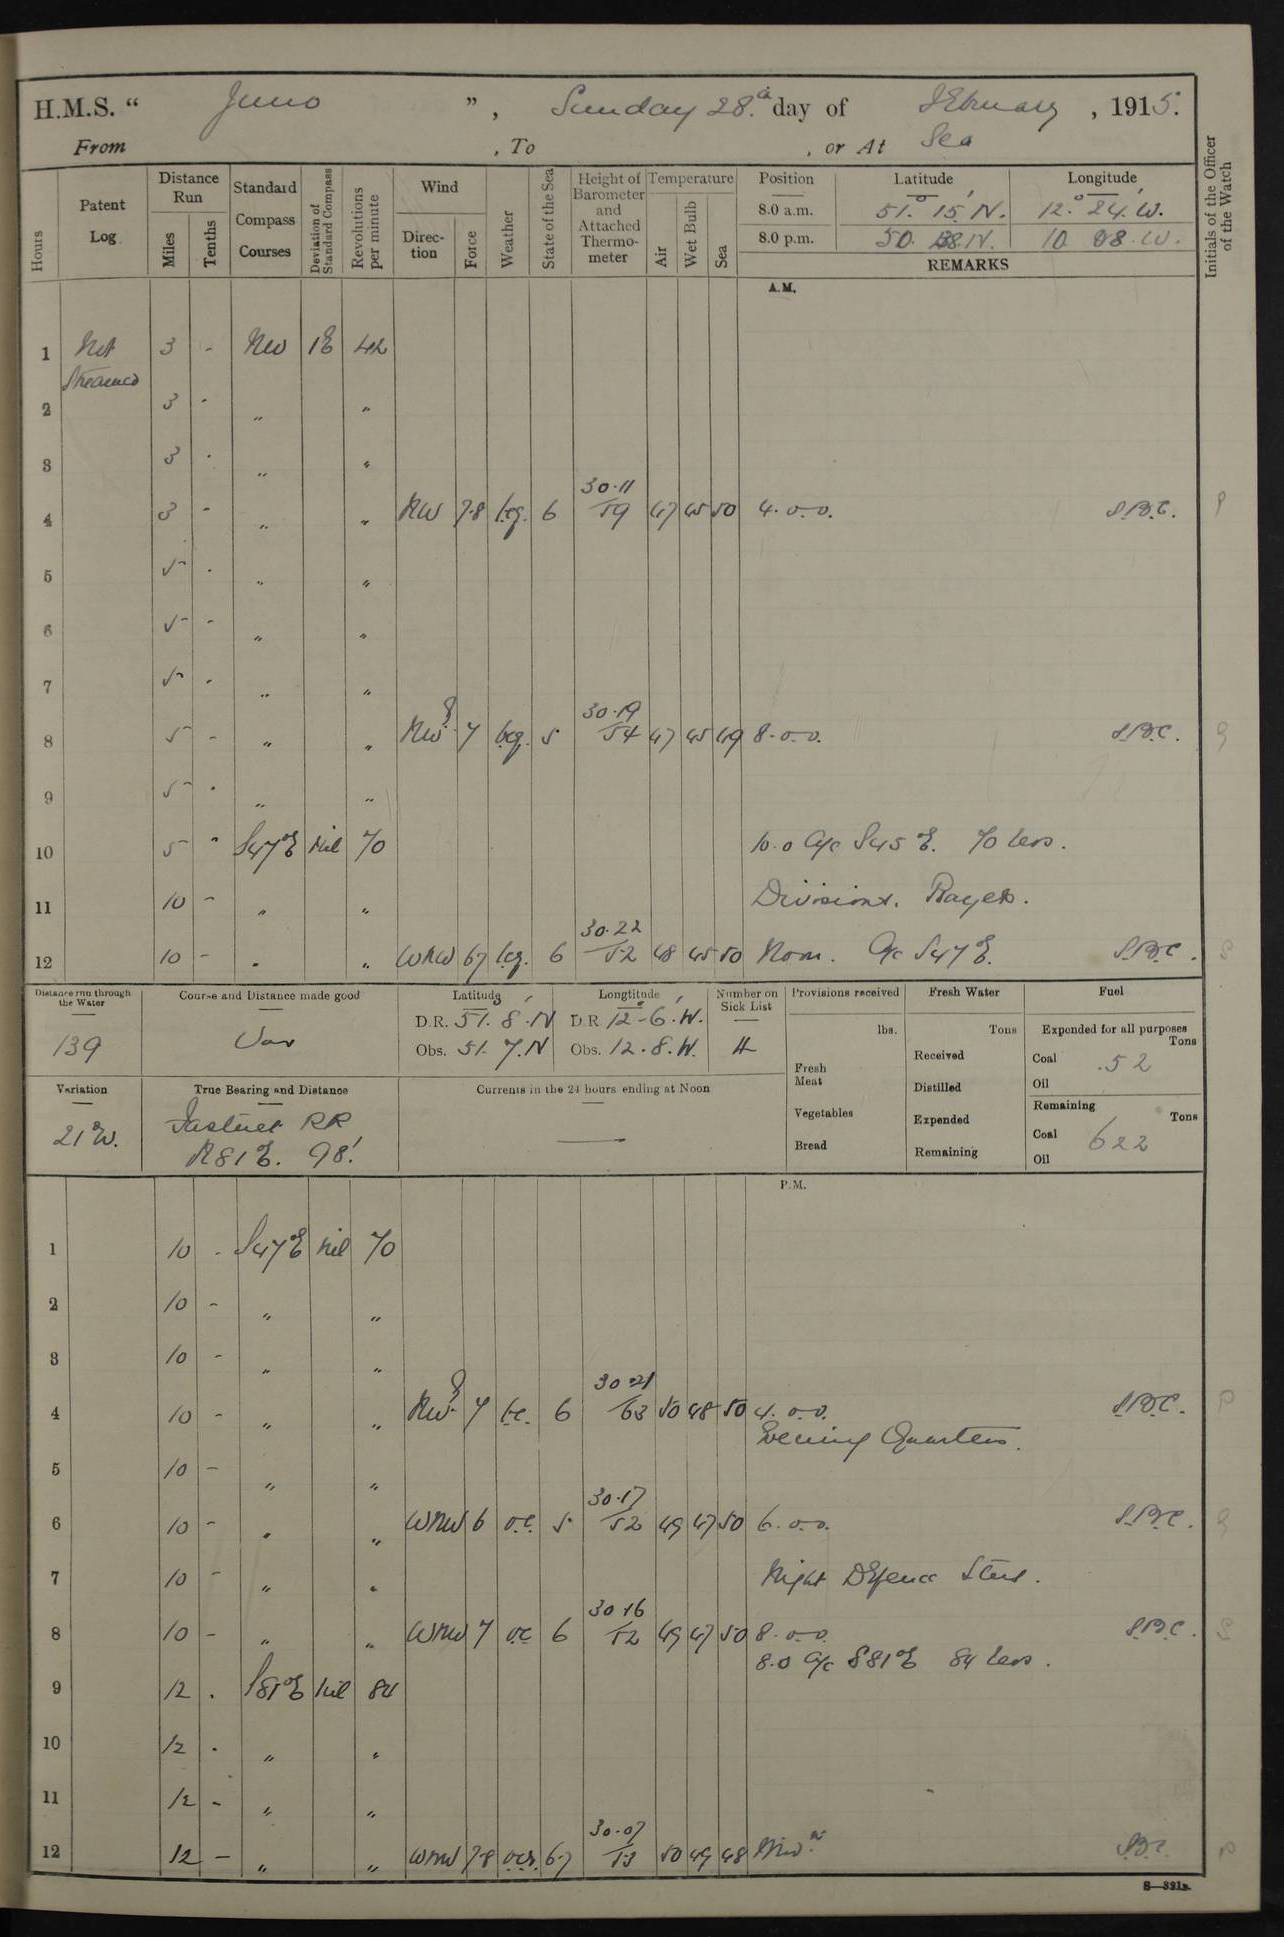 H.M.S. “ Juno ”, Sunday 28.th day of February, 1915.
From , To , or At Sea
Hours
Patent Log
Distance Run
Miles
Tenths
Standard Compass Courses
Deviation of Standard Compass
Revolutions per minute
Wind
Direction
Force
Weather
State of the Sea
Height of Barometer and Attached Thermometer
Temperature
Air
Wet Bulb
Sea
Position Latitude Longitude
8.0 a.m. 51.° 15.′ N. 12.° 24.′ W.
8.0 p.m. 50. N. 10 W.
REMARKS
Initials of the Officer of the Watch
A.M.
1 Not Streamed 3 - NW 1E 42
2 3 - „ „
3 3 - „ „
4 3 - „ „ NW 7.8 bcq. 6 30.11 / 59 47 45 50 4. o-o. S.B.C.
5 5 - „ „
6 5 - „ „
7 5 - „ „
8 5 - „ „ NW. 7 bcq. 5 30.19 / 54 47 45 49 8. o-o. S.B.C.
9 5 - „ „
10 5 - S47°E Nil 70 10.0 A/c S45°E. 70 revs.
11 10 - „ „ Divisions. Prayers.
12 10 - „ „ WNW 67 bcq. 6 30.22 / 52 48 45 50 Noon. A/c S47°E. S.B.C.
Distance run through the Water
139
Course and Distance made good
Var
Latitude
D.R. 51.° 8.′ N
Obs. 51. 7. N
Longtitude
D.R 12.° 6.′ W.
Obs. 12. 8. W.
Number on Sick List
4
Provisions received
lbs.
Fresh Meat
Vegetables
Bread
Fresh Water
Tons
Received
Distilled
Expended
Remaining
Fuel
Expended for all purposes
Tons
Coal 52
Oil
Remaining
Tons
Coal 622
Oil
Variation
21°W.
True Bearing and Distance
Fastnet RR
N81°E. 98′
Currents in the 24 hours ending at Noon
P.M.
1 10 - S47°E Nil 70
2 10 - „ „
3 10 - „ „
4 10 - „ „ NW. 7 bc. 6 30.21 / 53 50 48 50 4. o-o. S.B.C.
Evening Quarters.
5 10 - „ „
6 10 - „ „ WNW 6 o.c. 5 30.17 / 52 49 47 50 6. o-o. S.B.C.
7 10 - „ „ Night Defence Stns.
8 10 - „ „ WNW 7 o.c 6 30.16 / 52 49 47 50 8. o-o. S.B.C.
8.0 A/c S81°E 84 revs.
9 12 . S81°E Nil 84
10 12 . „ „
11 12 - „ „
12 12 - „ „ WNW 7.8 6.7 30.07 / 53 50 49 48 Mid.t S.B.C.